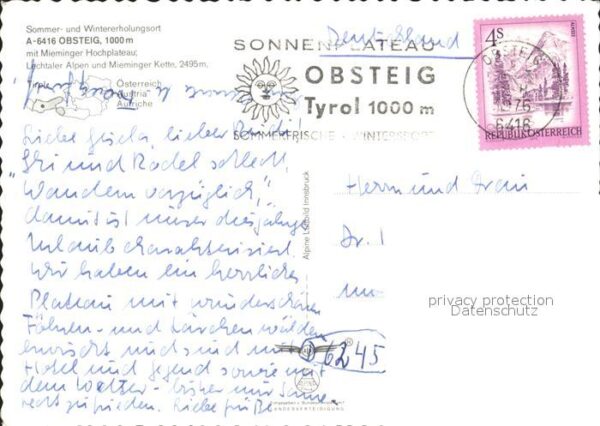 Sommer- und Wintererholungsort
A-6416 OBSTEIG, 1000 m
mit Mieminger Hochplateau;
Lechtaler Alpen und Mieminger Kette, 2495m,
Österreich
Austria
Autriche
Deutschland
SONNENPLATEAU
OBSTEIG
Tyrol 1000 m
SOMMERFRISCHE · WINTERSPORT
OBSTEIG
1976
6416
4S
REPUBLIK ÖSTERREICH
Liebe Gisela, lieber
"Ski und Rodel schlecht,
Wandern vorzüglich",
damit ist unser diesjähriger
Urlaub charakterisiert.
Wir haben ein herrliches
Plateau mit wunderschönen
Föhren- und Lärchenwäldern
erwischt und sind mit
Hotel und Gegend sowie mit
dem Wetter - bisher nur Sonne -
recht zufrieden. Liebe Grüße
Alpine Luftbild Innsbruck
Herrn und Frau
Dr.
D 6245
LANDESVERTEIDIGUNG
privacy protection
Datenschutz